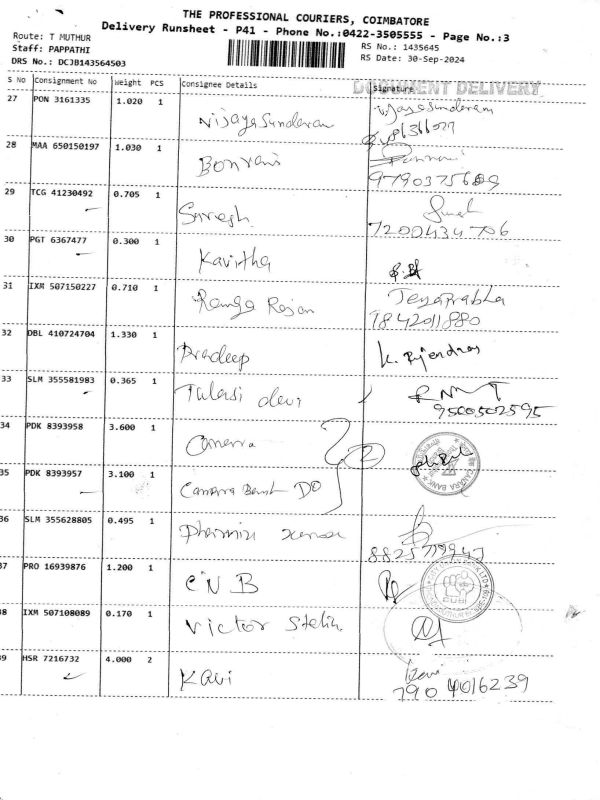 THE PROFESSIONAL COURIERS, COIMBATORE
Delivery Runsheet - P41 - Phone No.:0422-3505555 - Page No.:3
Route: T MUTHUR
Staff: PAPPATHI
DRS No.: DCJB143564503
RS No.: 1435645
RS Date: 30-Sep-2024
DOCUMENT DELIVERY
S No Consignment No Weight PCS Consignee Details Signature
27 PON 3161335 1.020 1 Vijaya Sundaram
28 MAA 650150197 1.030 1
29 TCG 41230492 0.705 1 Suresh
7200434706
30 PGT 6367477 0.300 1 Kavitha
31 IXM 507150227 0.710 1 Ranga Rajan Jeyaprabha
9842011880
32 DBL 410724704 1.330 1 Pradeep K. Rajendran
33 SLM 355581983 0.365 1 Tulasi devi
9500502595
34 PDK 8393958 3.600 1 Canara 2
CANARA BANK
35 PDK 8393957 3.100 1 Canara Bank DO
36 SLM 355628805 0.495 1
37 PRO 16939876 1.200 1 CNB
38 IXM 507108089 0.170 1 Victor Stelin
39 HSR 7216732 4.000 2 Kavi Kavi
7904016239